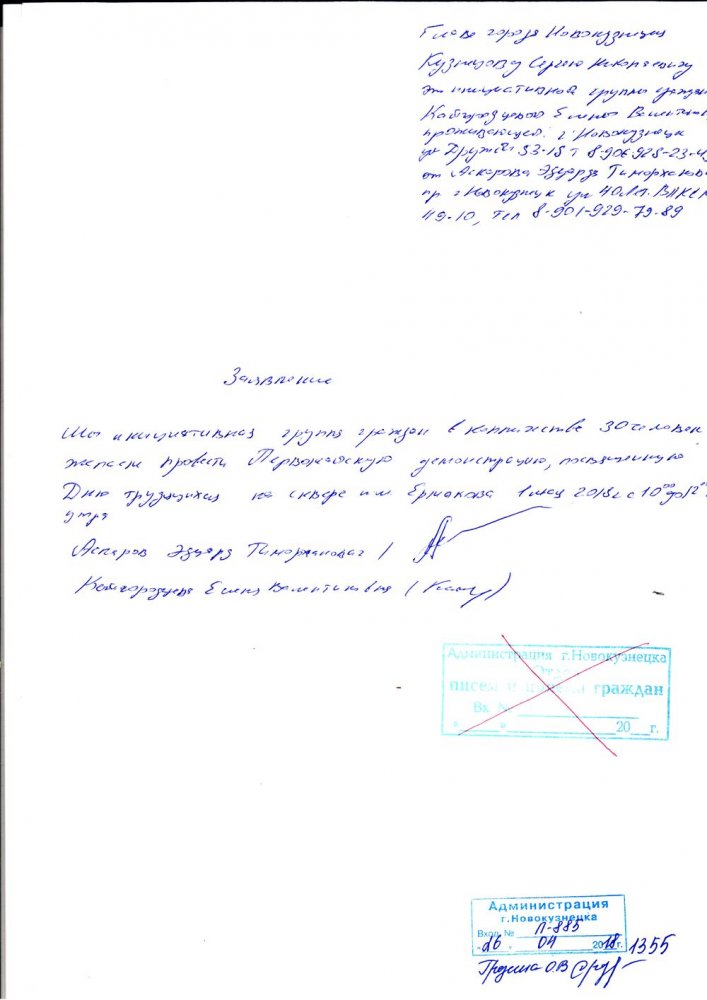 Главе города Новокузнецка
Кузнецову Сергею Николаевичу
от инициативной группы граждан
Кайгородцевой Елены Валентинов
проживающей: г. Новокузнецк
ул Дружбы 53-15 т 8-906-928-23-4
от Аскарова Эдуарда Тиморханов
пр г Новокузнецк ул 40 Лет. ВЛКСМ
49-10, тел 8-901-929-79-89
Заявление
Мы инициативная группа граждан в количестве 30 человек
желаем провести Первомайскую демонстрацию, посвященную
Дню трудящихся на сквере им Ермакова 1 мая 2018г с 10 00 до 12
утра
Аскаров Эдуард Тиморханович /
Кайгородцева Елена Валентиновна (
Администрация г.Новокузнецка
Отдел
писем и приёма граждан
Вх. №
" " 20 г.
Администрация
г. Новокузнецка
Вход. № П-885
"26" 04 2018 г. 1355
О.В